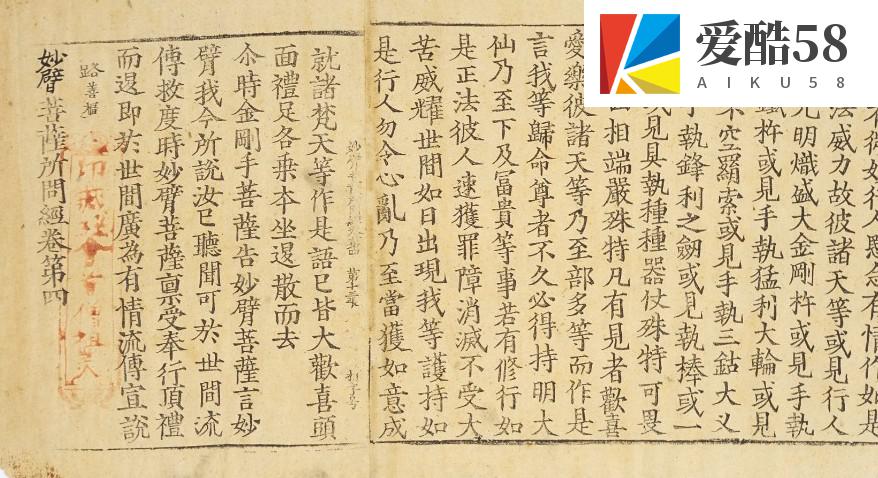 爱酷58
AIKU58
行人愍念有情作如是
法威力故彼諸天等或見行人
光明熾盛大金剛杵或見手執
杵或見手執猛利大輪或見
不空羂索或見手執三鈷大义
手執鋒利之劒或見執棒或一
或見具執種種器仗殊特可畏
相端嚴殊特凡有見者歡喜
愛樂彼諸天等乃至部多等而作是
言我等歸命尊者不久必得持明大
仙乃至下及冨貴等事若有修行如
是正法彼人速獲罪障消滅不受大
苦威耀世間如日出現我等護持如
是行人勿令心亂乃至當獲如意成
就諸梵天等作是語已皆大歡喜頭
面禮足各乗本坐退散而去
尒時金剛手菩薩告妙臂菩薩言妙
臂我今所說汝已聽聞可於世間流
傳救度時妙臂菩薩禀受奉行頂禮
而退即於世間廣為有情流傳宣說
妙臂菩薩所問經卷第四